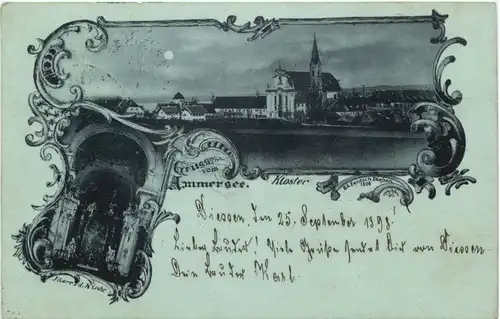 Gruss
vom
Ammersee.
Kloster
Diessen, den 25. September 1898!
Lieber Bruder! Viele Grüße sendet Dir von Diessen
Dein Bruder Karl.